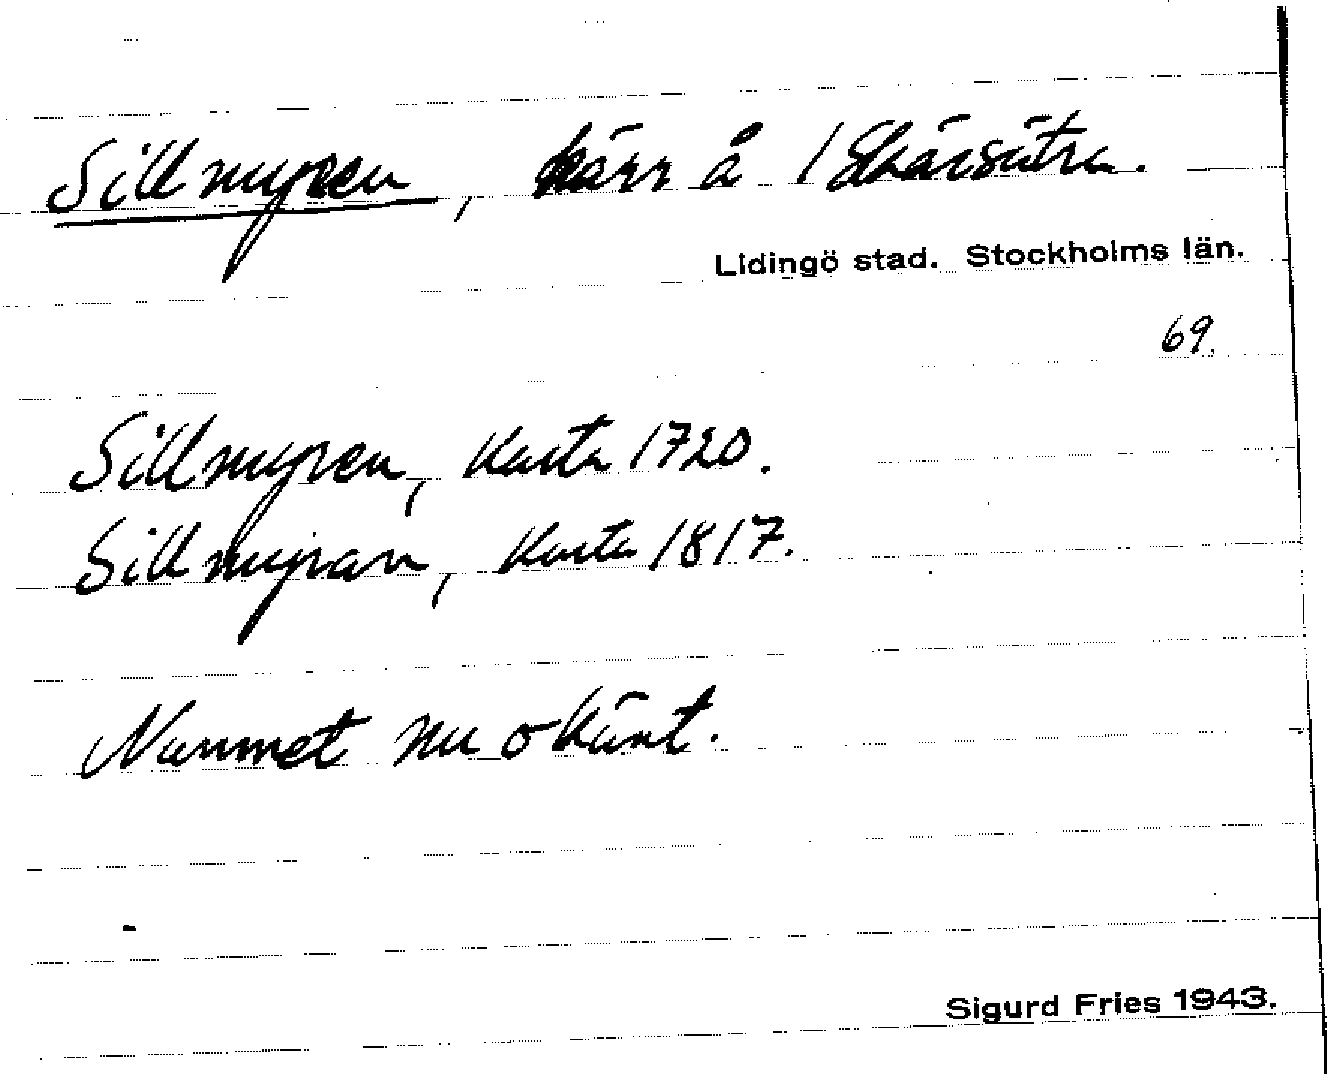 Sillmyren, kärr å 1 Skärsätra.
Lidingö stad. Stockholms län.
69.
Sillmyren, Karta 1720.
Sillmyran, Karta 1817.
Namnet nu okänt.
Sigurd Fries 1943.